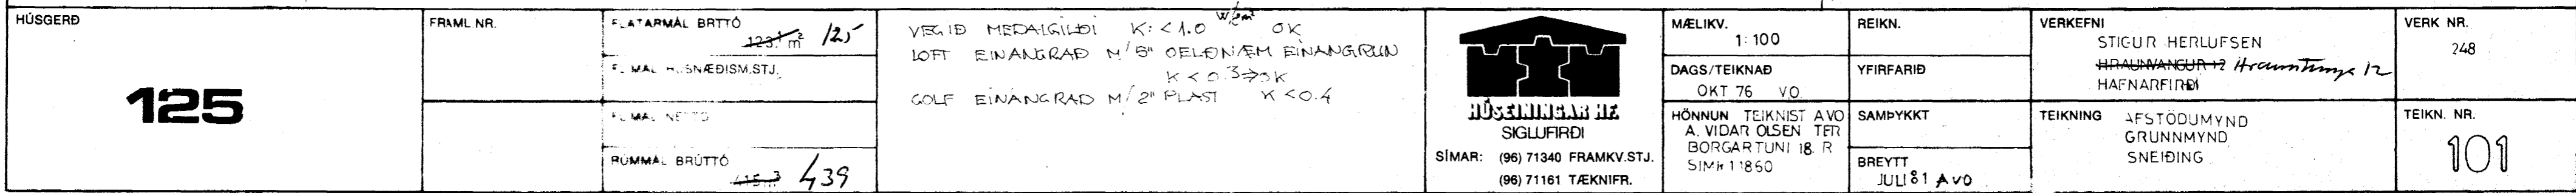 HÚSGERÐ
125
FRAML NR.
FLATARMÁL BRTTÓ
123.1 m² 125
FL MÁL HÚSNÆÐISM.STJ.
FL MÁL NETTÓ
RÚMMÁL BRÚTTÓ
415 m³ 439
VEGIÐ MEÐALGILDI K: < 1.0 W/m² OK
LOFT EINANGRAÐ M/ 5" OELDNÆM EINANGRUN
K < 0.3 ⇒ OK
GOLF EINANGRAÐ M/ 2" PLAST K < 0.4
HÚSEININGAR HF.
SIGLUFIRÐI
SÍMAR: (96) 71340 FRAMKV.STJ.
(96) 71161 TÆKNIFR.
MÆLIKV.
1:100
DAGS/TEIKNAÐ
OKT 76 V.O.
HÖNNUN TEIKNIST AVO
A. VIÐAR OLSEN TFR
BORGARTUNI 18. R
REIKN.
YFIRFARIÐ
SAMÞYKKT
BREYTT
JULI 81 AVO
VERKEFNI
STIGUR HERLUFSEN
HRAUNVANGUR 12 Hraunstunga 12
HAFNARFIRÐI
TEIKNING AFSTÖÐUMYND
GRUNNMYND
SNEIÐING
VERK NR.
248
TEIKN. NR.
101